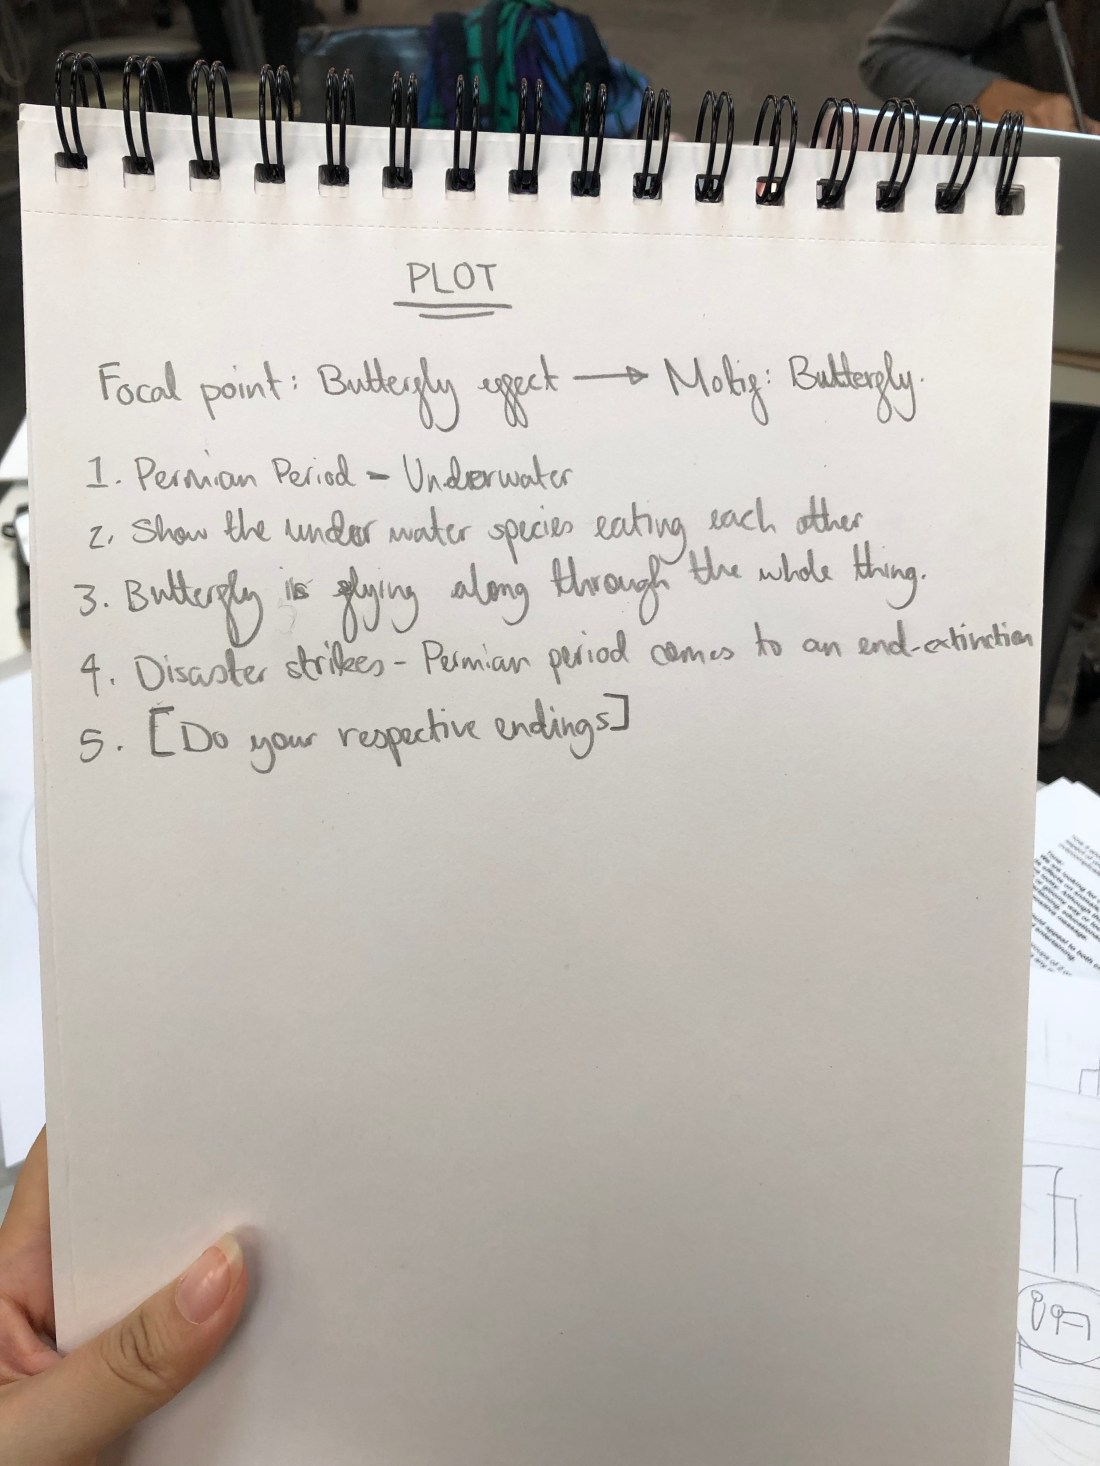 PLOT
Focal point: Butterfly effect → Motif: Butterfly.
1. Permian Period - Underwater
2. Show the under water species eating each other
3. Butterfly is flying along through the whole thing.
4. Disaster strikes - Permian period comes to an end-extinction
5. [Do your respective endings]